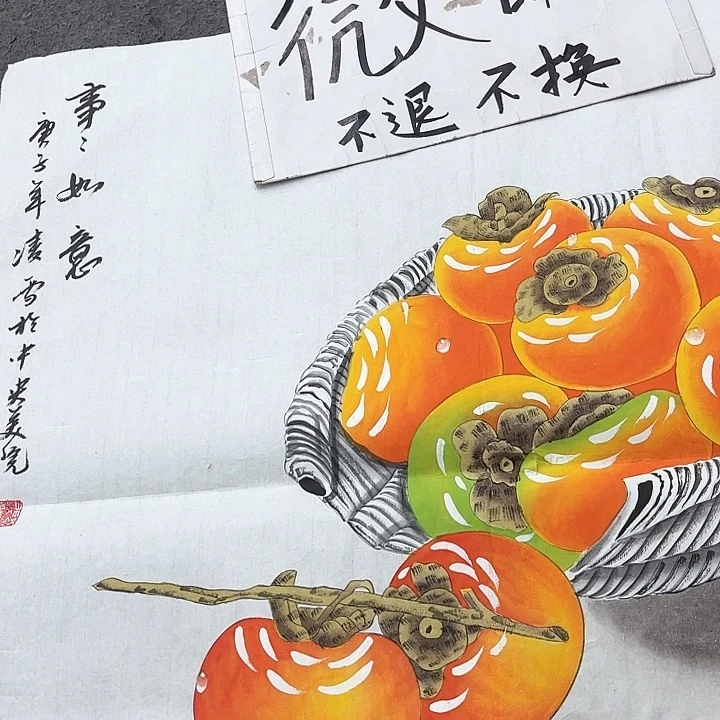 不退不换
事〻如意
庚子年凌雪於中央美院